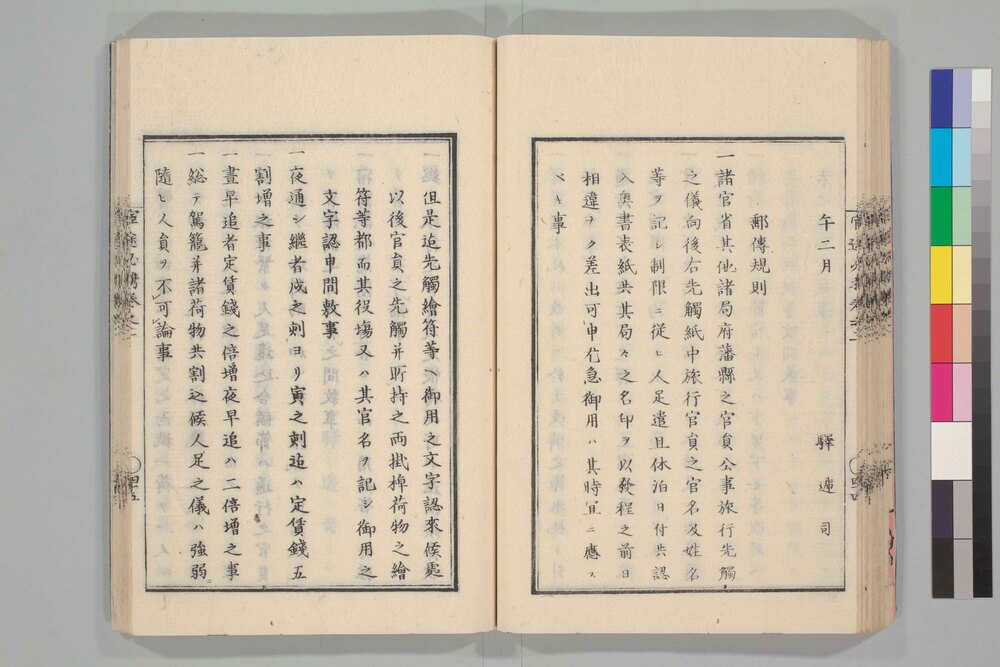 午二月 驛遞司
郵傳規則
一諸官省其他諸局府藩縣之官員公事旅行先觸
之儀向後右先觸紙中旅行官員之官名及姓名
等ヲ記シ制限ニ従ヒ人足遣且休泊日付共認
入奥書表紙共其局々之名印ヲ以發程之前日
相違ナク差出可申尤急御用ハ其時宜ニ應ス
ベキ事
但是迄先觸繪符等ヘ御用之文字認來候處
以後官員之先觸并所持之両掛掉荷物之繪
符等都而其役場又ハ其官名ヲ記シ御用之
文字認申間敷事
一夜通シ継者戌之刻ヨリ寅之刻迄ハ定賃錢五
割増之事
一晝早追者定賃錢之倍増夜早追ハ二倍増之事
一総テ駕籠并諸荷物共割込候人足之儀ハ強弱ニ
隨ヒ人員ヲ不可論事